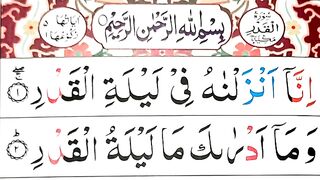 سُوْرَةُ الْقَدْرِ مَكِّيَّةٌ
بِسْمِ اللّٰهِ الرَّحْمٰنِ الرَّحِيْمِ
اٰيَاتُهَا ٥
اِنَّاۤ اَنْزَلْنٰهُ فِیْ لَیْلَةِ الْقَدْرِ ۝١
وَمَاۤ اَدْرٰىكَ مَا لَیْلَةُ الْقَدْرِ ۝٢